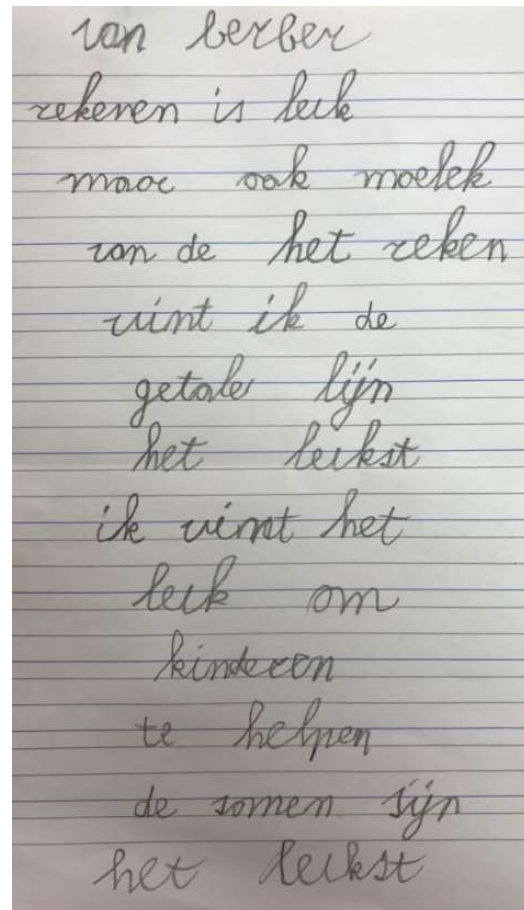 van berber
rekenen is leuk
maar ook moelek
van de het reken
vint ik de
getale lijn
het leukst
ik vint het
leuk om
kinderen
te helpen
de somen sijn
het leukst